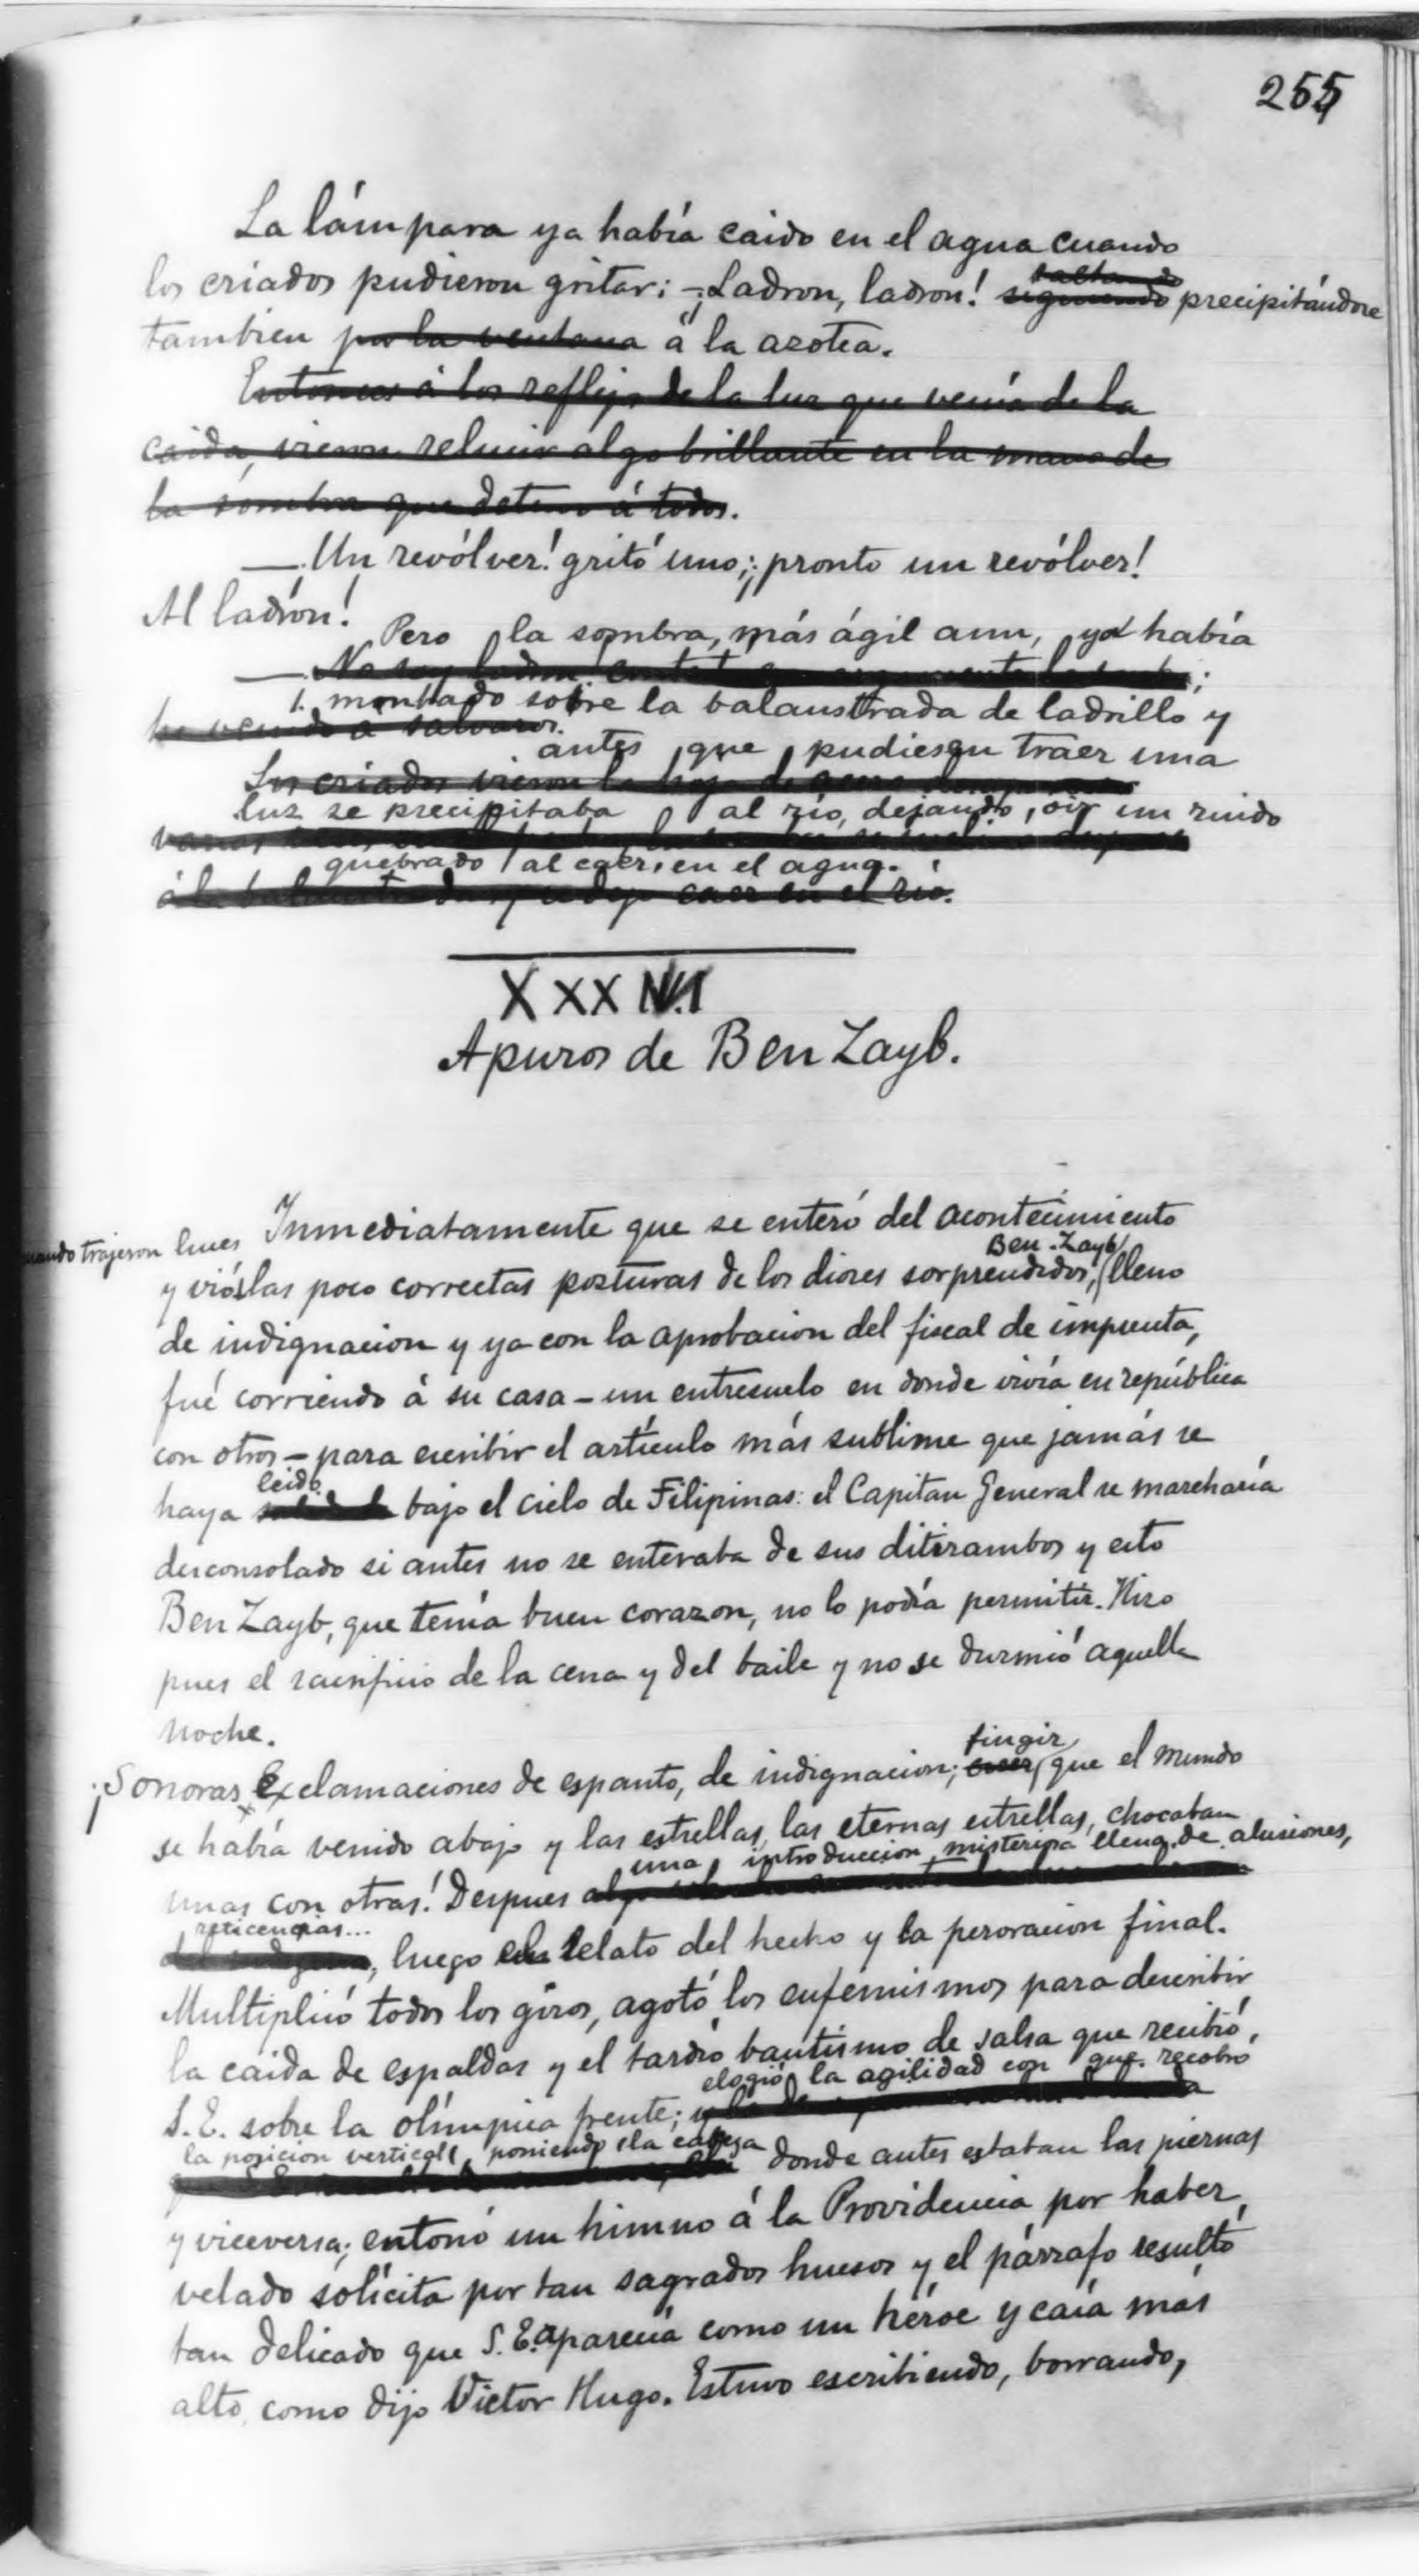 255
La lámpara ya había caido en el agua cuando
los criados pudieron gritar: —¡Ladron, ladron! siguiendo precipitándose
tambien por la ventana á la azotea.
Entonces á los reflejos de la luz que venía de la
caida, vieron relucir algo brillante en la mano de
la sombra que detuvo á todos.
—¡Un revólver! gritó uno; ¡pronto un revólver!
Al ladrón!
Pero la sombra, más ágil aun, ya había
—No soy ladron
montado sobre la balaustrada de ladrillo y
he venido á salvaros.
antes que pudiesen traer una
Los criados vieron la hoja de
luz se precipitaba al río, dejando oir un ruido
quebrado al caer en el agua.
caer en el río.
XXXVI
Apuros de Ben Zayb.
Inmediatamente que se enteró del acontecimiento
cuando trajeron luces
Ben-Zayb
y vió las poco correctas posturas de los dioses sorprendidos, lleno
de indignacion y ya con la aprobacion del fiscal de imprenta,
fué corriendo á su casa — un entresuelo en donde vivía en república
con otros — para escribir el artículo más sublime que jamás se
leido
haya bajo el cielo de Filipinas: el Capitan General se marcharía
desconsolado si antes no se enteraba de sus ditirambos y esto
Ben Zayb, que tenía buen corazon, no lo podía permitir. Hizo
pues el sacrificio de la cena y del baile y no se durmió aquella
noche.
fingir
¡Sonoras Exclamaciones de espanto, de indignacion; creer que el mundo
se había venido abajo y las estrellas, las eternas estrellas, chocaban
una introduccion misteriosa llena de alusiones,
unas con otras! Despues
reticencias...
, luego el relato del hecho y la peroracion final.
Multiplicó todos los giros, agotó los eufemismos para describir
la caida de espaldas y el tardío bautismo de salsa que recibió
elogió la agilidad con que recobró
S. E. sobre la olímpica frente;
la posicion vertical, poniendo la cabeza donde antes estaban las piernas
y viceversa; entonó un himno á la Providencia por haber
velado solícita por tan sagrados huesos y el párrafo resultó
tan delicado que S. E. aparecía como un héroe y caía más
alto como dijo Victor Hugo. Estuvo escribiendo, borrando,